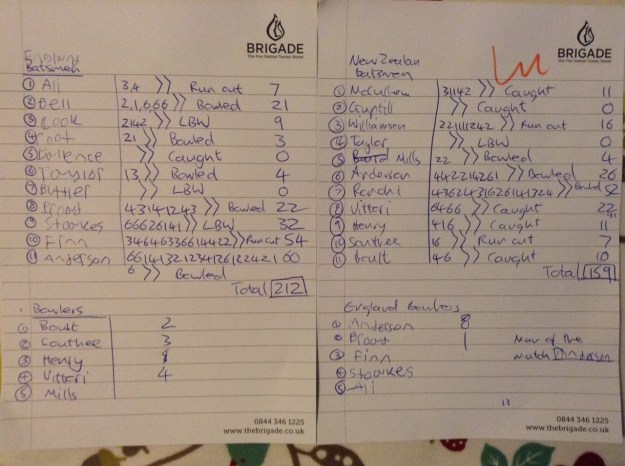 BRIGADE
The Fire Station Tooley Street
England
Batsmen
① Ali 3,4 》 Run out 7
② Bell 2,1,6,6,6 》 Bowled 21
③ Cook 2142 》 LBW 9
④ root 21 》 Bowled 3
⑤ Ballence 》 Caught 0
⑥ Taylor 13 》 Bowled 4
⑦ Buttler 》 LBW 0
⑧ Broad 43141243 》 Bowled 22
⑨ Stoarkes 66626141 》 LBW 32
⑩ Finn 3464633661 4422 》 Run out 54
⑪ Anderson 6614132123413612 22421 60
6 》 Bowled
Total 212
Bowlers
① Boult 2
② Southee 3
③ Henry
④ Vittori 4
⑤ Mills
0844 346 1225
www.thebrigade.co.uk
BRIGADE
The Fire Station Tooley Street
New Zealan
batsmen
① McCullum 31142 》 Caught 11
② Guptill 》 Caught 0
③ Williamson 221111242 》 Run out 16
④ Taylor 》 LBW 0
⑤ Mills 22 》 Bowled 4
⑥ Anderson 4422214261 》 Bowled 26
⑦ Ronchi 》 Bowled 52
⑧ Vittori 6466 》 Caught 22
⑨ Henry 416 》 Caught 11
⑩ Southee 16 》 Run out 7
⑪ Boult 46 》 Caught 10
Total 159
England Bowlers
① Anderson 8
② Broad 1
③ Finn
④ Stoarkes
⑤ Ali
Man of the
match Anderson
0844 346 1225
www.thebrigade.co.uk